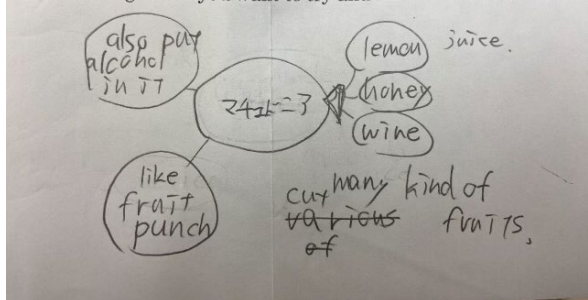 also put
alcohol
in it
マチェドニア
lemon juice.
honey
wine
like
fruit
punch
cut many kind of
various fruits,
of